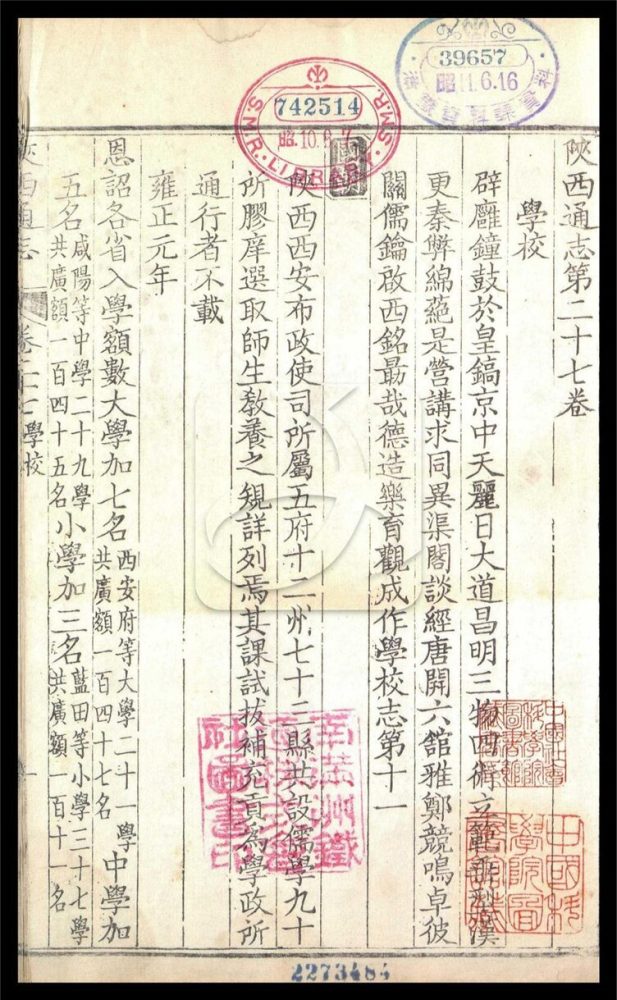 39657
昭 11.6.16
742514
S.M.R. LIBRARY S.M.R.
陝西通志第二十七卷
學校
辟廱鐘鼓於皇鎬京中天麗日大道昌明三物四術立範垂型漢
更秦弊綿蕝是營講求同異渠閣談經唐開六舘雅鄭競鳴卓彼
關儒鑰啟西銘勗哉德造樂育觀成作學校志第十一
陝西西安布政使司所屬五府十二州七十三縣共設儒學九十
所膠庠選取師生敎養之規詳列焉其課試拔補充貢為學政所
通行者不載
雍正元年
恩詔各省入學額數大學加七名西安府等大學二十一學共廣額一百四十七名中學加
五名咸陽等中學二十九學共廣額一百四十五名小學加三名藍田等小學三十七學共廣額一百十一名
陝西通志 卷二十七 學校 一
2273484